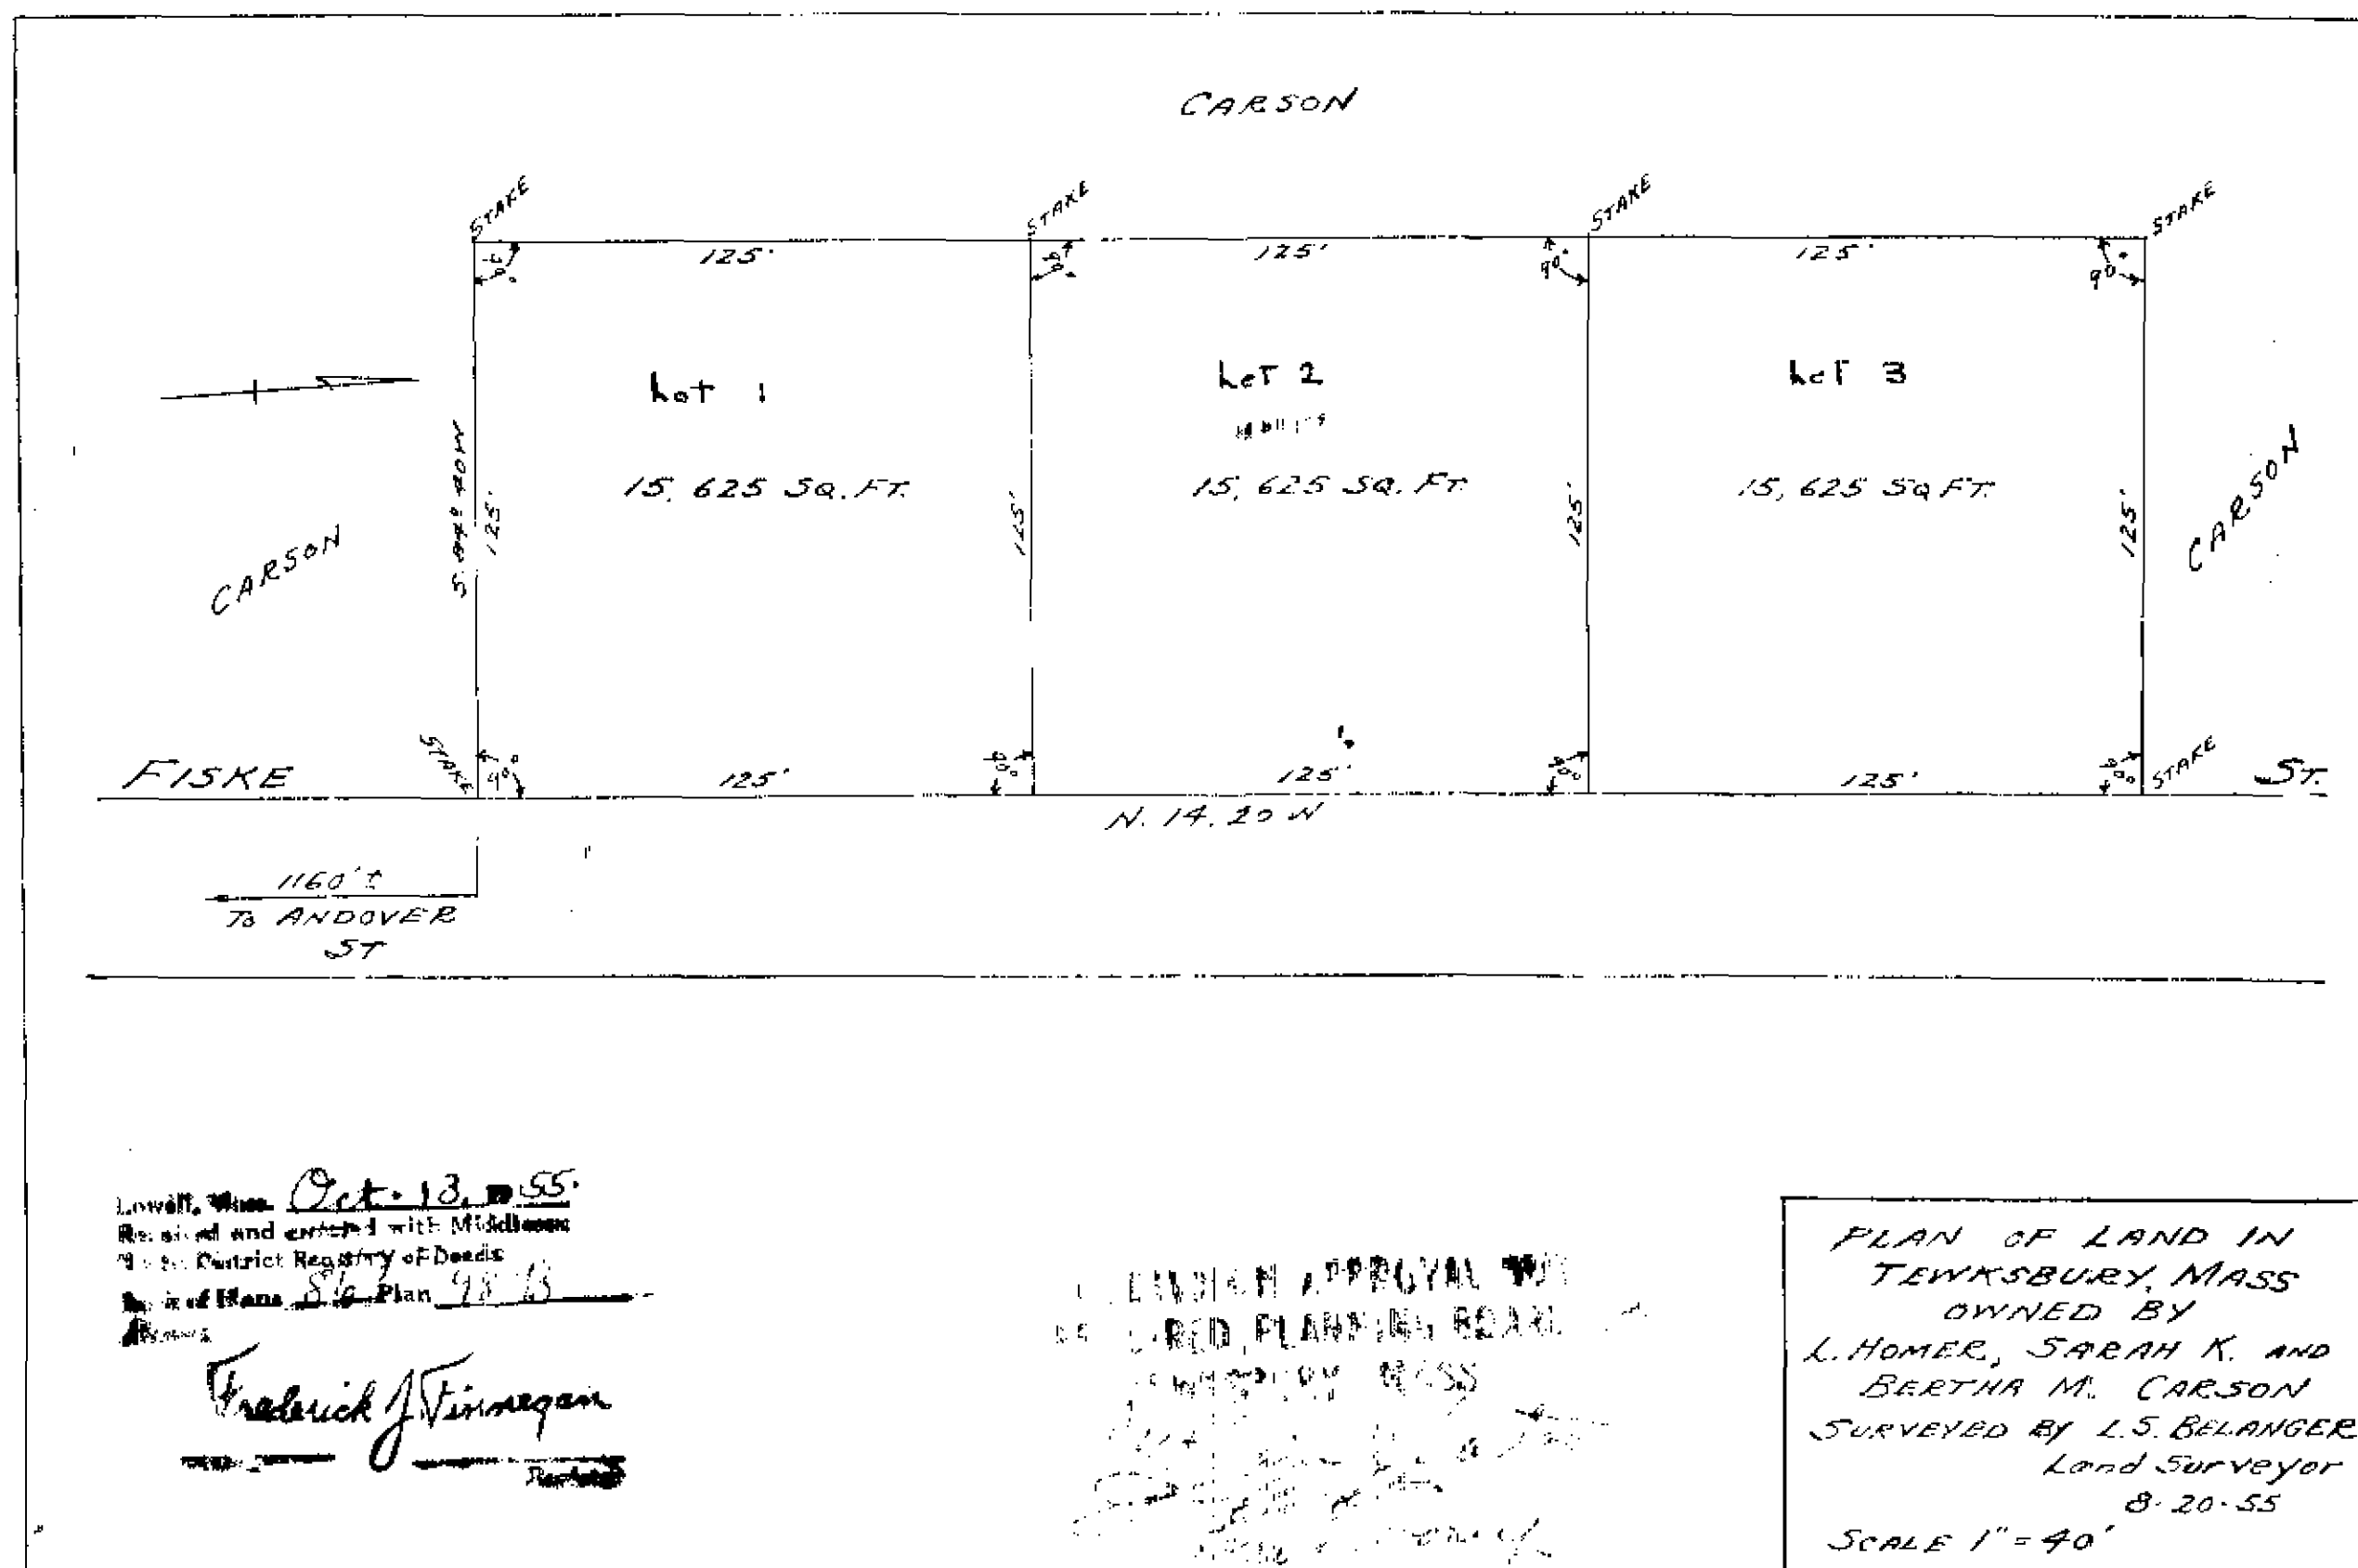 CARSON
STAKE
STAKE
STAKE
STAKE
125'
125'
125'
90°
90°
90°
90°
Lot 1
Lot 2
Lot 3
15,625 SQ. FT.
15,625 SQ. FT.
15,625 SQ FT.
CARSON
125'
125'
125'
125'
CARSON
FISKE
STAKE
90°
125'
90°
125'
90°
125'
90°
STAKE
ST.
N. 14.20 W
1160'±
TO ANDOVER
ST
Lowell, Mass. Oct. 13, 1955.
Received and entered with Middlesex
District Registry of Deeds
Book of Plans Plan
Frederick J. Finnegan
APPROVAL NOT
PLANNING BOARD
MASS
PLAN OF LAND IN
TEWKSBURY, MASS
OWNED BY
L. HOMER, SARAH K. AND
BERTHA M. CARSON
SURVEYED BY L.S. BELANGER
Land Surveyor
8-20-55
SCALE 1" = 40'